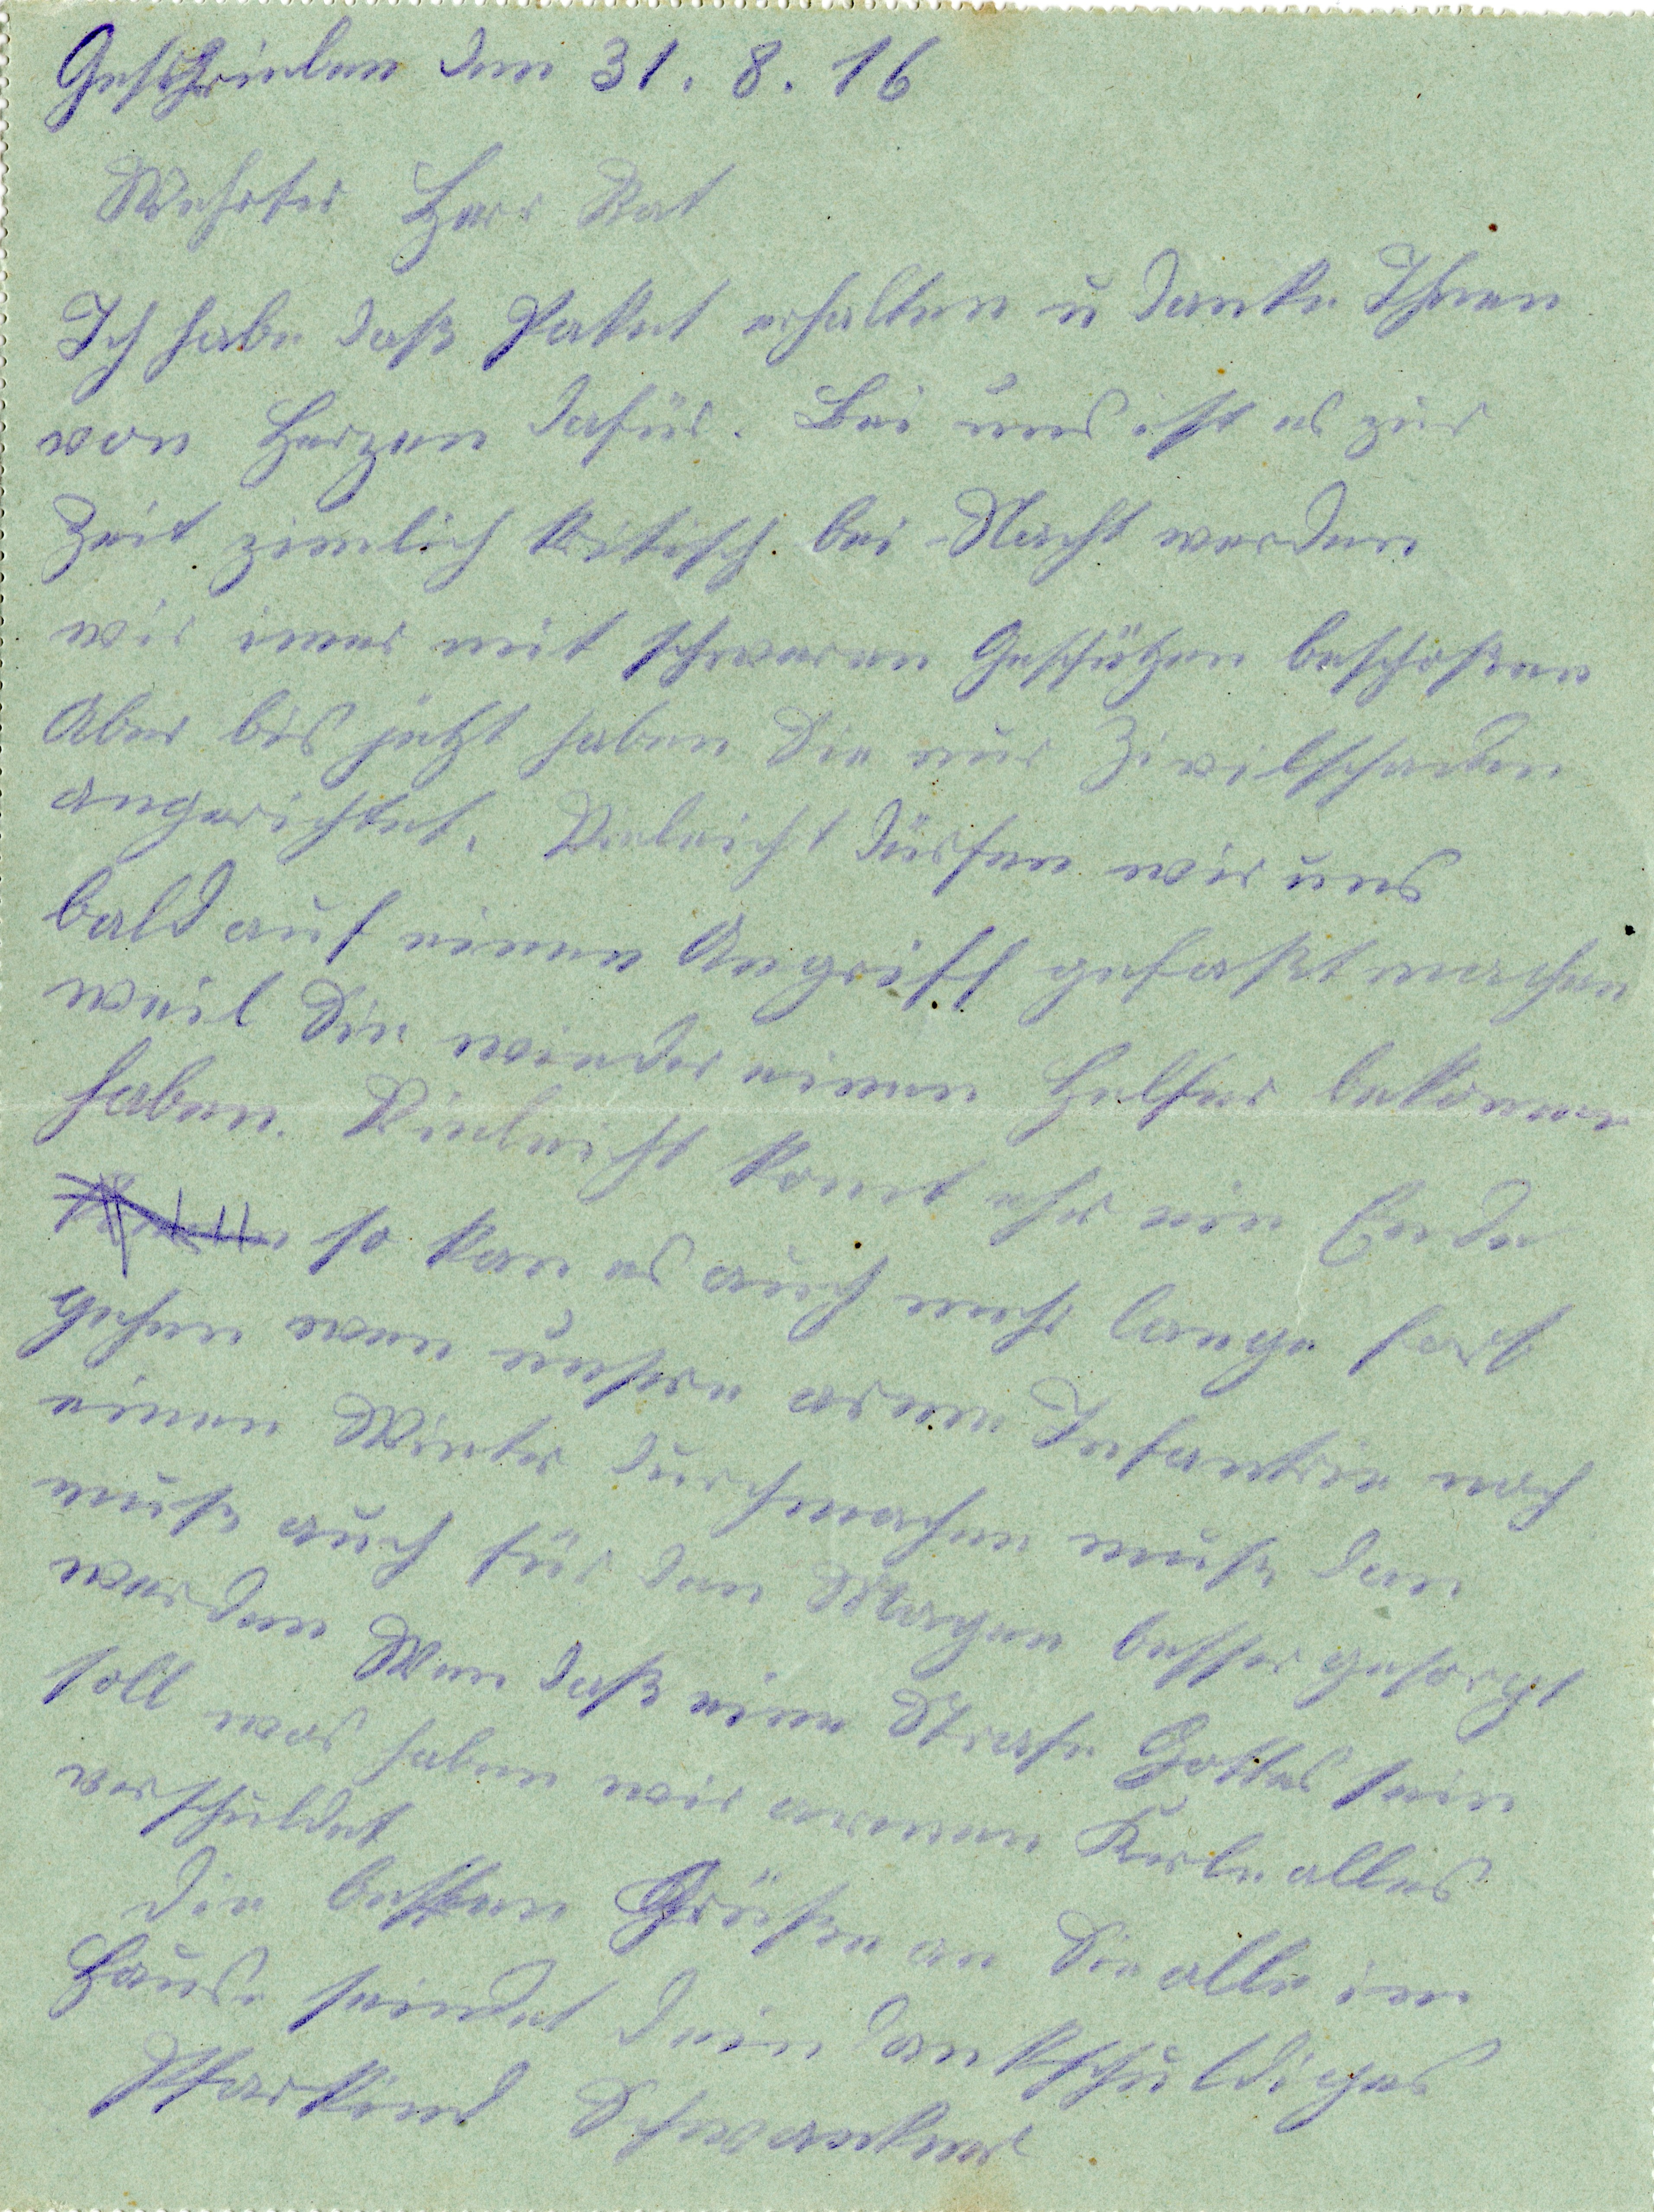 Geschrieben den 31. 8. 16
Wehrter Herr Rat
Ich habe daß Paket erhalten u danke Ihnen
von Herzen dafür. Bei uns ist es zur
Zeit zimlich kritisch. bei Nacht werden
wir imer mit schweren Geschützen beschoßen
Aber bis jetzt haben Sie nur Zivilschaden
angerichtet. Vieleicht dürfen wir uns
bald auf einen Angriff gefaßt machen
weil Sie wieder einen Helfer bekomen
haben. Vieleicht komt ehr ein Ende
so kan es auch mehr lange fort
gehen wen unsre arme Infantrie noch
einen Winter durchmachen muß dan
muß auch für den Magen besser gesorgt
werden Wen daß eine Strafe Gottes sein
soll was haben wir armen Kerle alles
verschuldet
die besten Grüßen an Sie alle im
Hause sendet dein dankschuldiges
Pfarrkind Schwankner